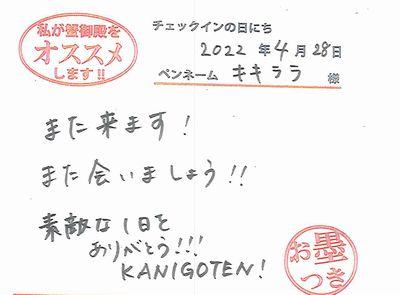 私が蟹御殿を
オススメ
します!!
チェックインの日にち
2022 年 4 月 28 日
ペンネーム キキララ 様
また来ます!
また会いましょう!!
素敵な1日を
ありがとう!!!
KANIGOTEN!
お墨
つき